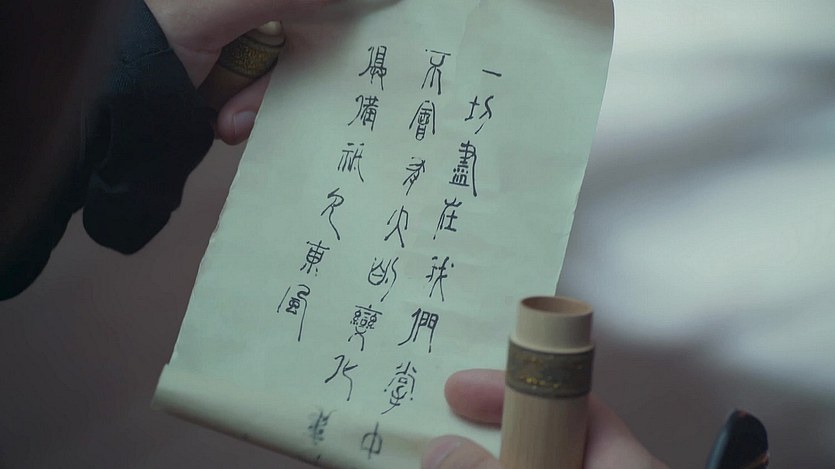 一切盡在我們掌中
不會有大的變化
俱備祇欠東風